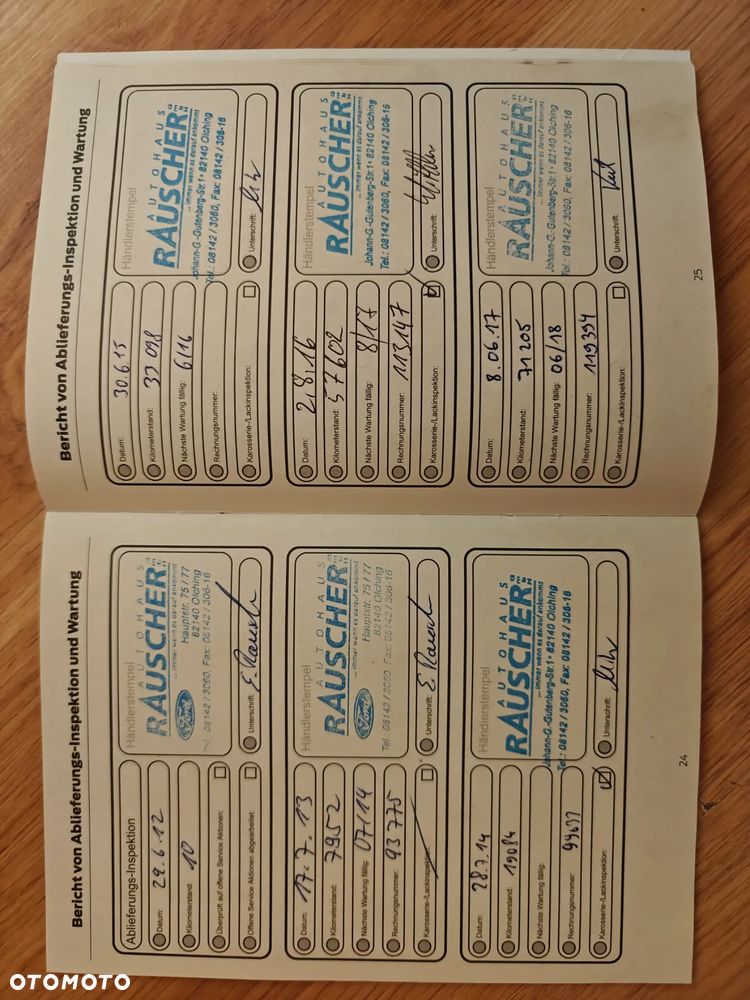 Bericht von Ablieferungs-Inspektion und Wartung
Ablieferungs-Inspektion
Datum: 29.6.12
Kilometerstand: 10
Überprüft auf offene Service Aktionen:
Offene Service Aktionen abgearbeitet:
Händlerstempel
AUTOHAUS
RAUSCHER GMBH
... immer wenn es darauf ankommt
Hauptstr. 75 / 77
82140 Olching
Tel. 08142 / 3060, Fax: 08142 / 306-16
Unterschrift: E. Rausch
Datum: 17.7.13
Kilometerstand: 7952
Nächste Wartung fällig: 07/14
Rechnungsnummer: 93775
Karosserie-/Lackinspektion:
Händlerstempel
AUTOHAUS
RAUSCHER GMBH
... immer wenn es darauf ankommt
Ford
Hauptstr. 75 / 77
82140 Olching
Tel. 08142 / 3060, Fax: 08142 / 306-16
Unterschrift: E. Rausch
Datum: 28.7.14
Kilometerstand: 19084
Nächste Wartung fällig:
Rechnungsnummer: 99691
Karosserie-/Lackinspektion:
Händlerstempel
AUTOHAUS
RAUSCHER GMBH
... immer wenn es darauf ankommt
Johann-G.-Gutenberg-Str.1 • 82140 Olching
Tel.: 08142 / 3060, Fax: 08142 / 306-16
Unterschrift:
24
Bericht von Ablieferungs-Inspektion und Wartung
Datum: 30.6.15
Kilometerstand: 37098
Nächste Wartung fällig: 6/16
Rechnungsnummer:
Karosserie-/Lackinspektion:
Händlerstempel
AUTOHAUS
RAUSCHER GMBH
... immer wenn es darauf ankommt
Johann-G.-Gutenberg-Str.1 • 82140 Olching
Tel.: 08142 / 3060, Fax: 08142 / 306-16
Unterschrift:
Datum: 2.8.16
Kilometerstand: 57602
Nächste Wartung fällig: 8/17
Rechnungsnummer: 113147
Karosserie-/Lackinspektion:
Händlerstempel
AUTOHAUS
RAUSCHER GMBH
... immer wenn es darauf ankommt
Johann-G.-Gutenberg-Str.1 • 82140 Olching
Tel.: 08142 / 3060, Fax: 08142 / 306-16
Unterschrift:
Datum: 8.06.17
Kilometerstand: 71205
Nächste Wartung fällig: 06/18
Rechnungsnummer: 119394
Karosserie-/Lackinspektion:
Händlerstempel
AUTOHAUS
RAUSCHER GMBH
... immer wenn es darauf ankommt
Johann-G.-Gutenberg-Str.1 • 82140 Olching
Tel.: 08142 / 3060, Fax: 08142 / 306-16
Unterschrift:
25
OTOMOTO